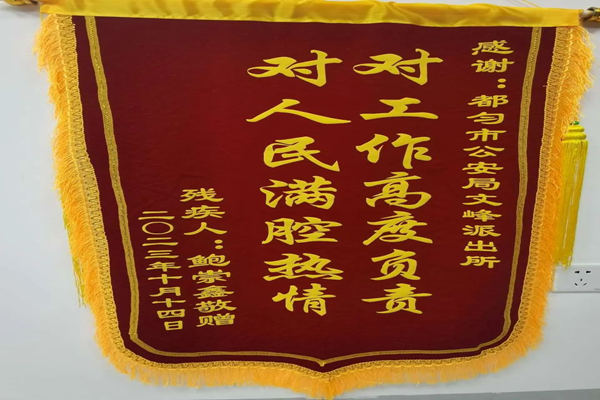 感谢：都匀市公安局文峰派出所
对工作高度负责
对人民满腔热情
残疾人：鲍崇鑫敬赠
二〇二三年十月十四日